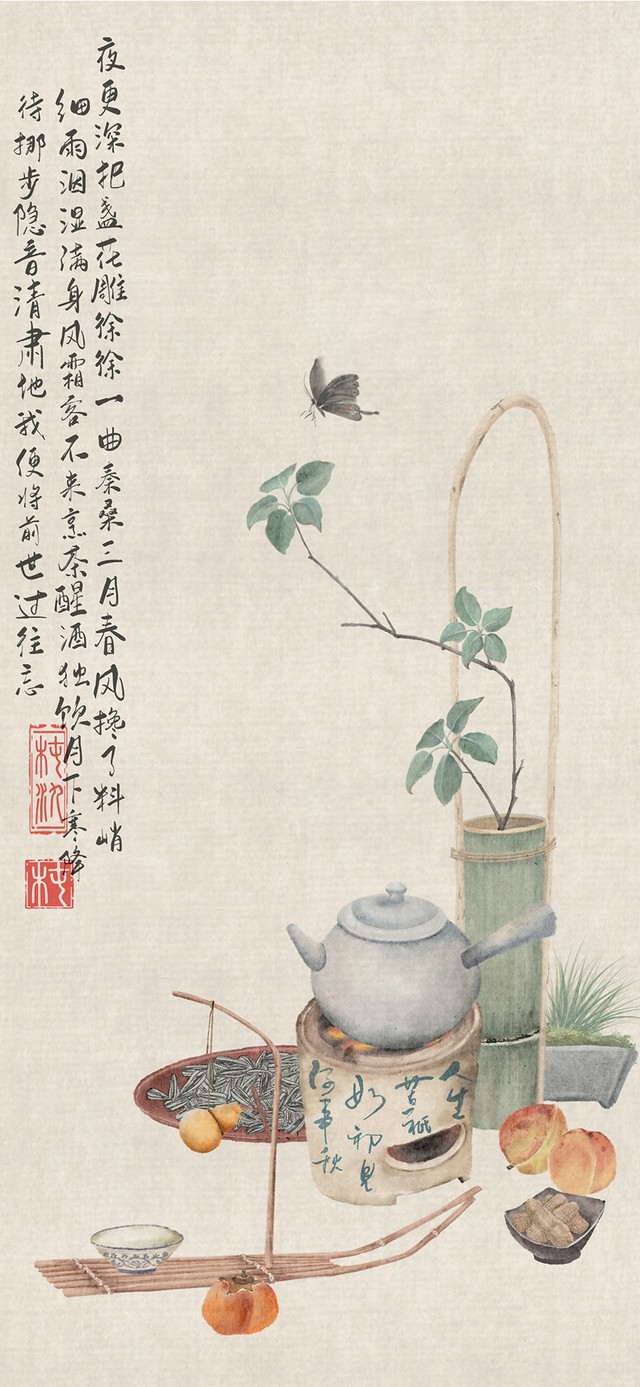 夜更深把盏花雕徐徐一曲秦桑三月春风搀了料峭
细雨洇湿满身风霜客不来烹茶醒酒独饮月下寒降
待挪步隐音清肃他我便将前世过往忘
人生
若祇
如初見
何事秋